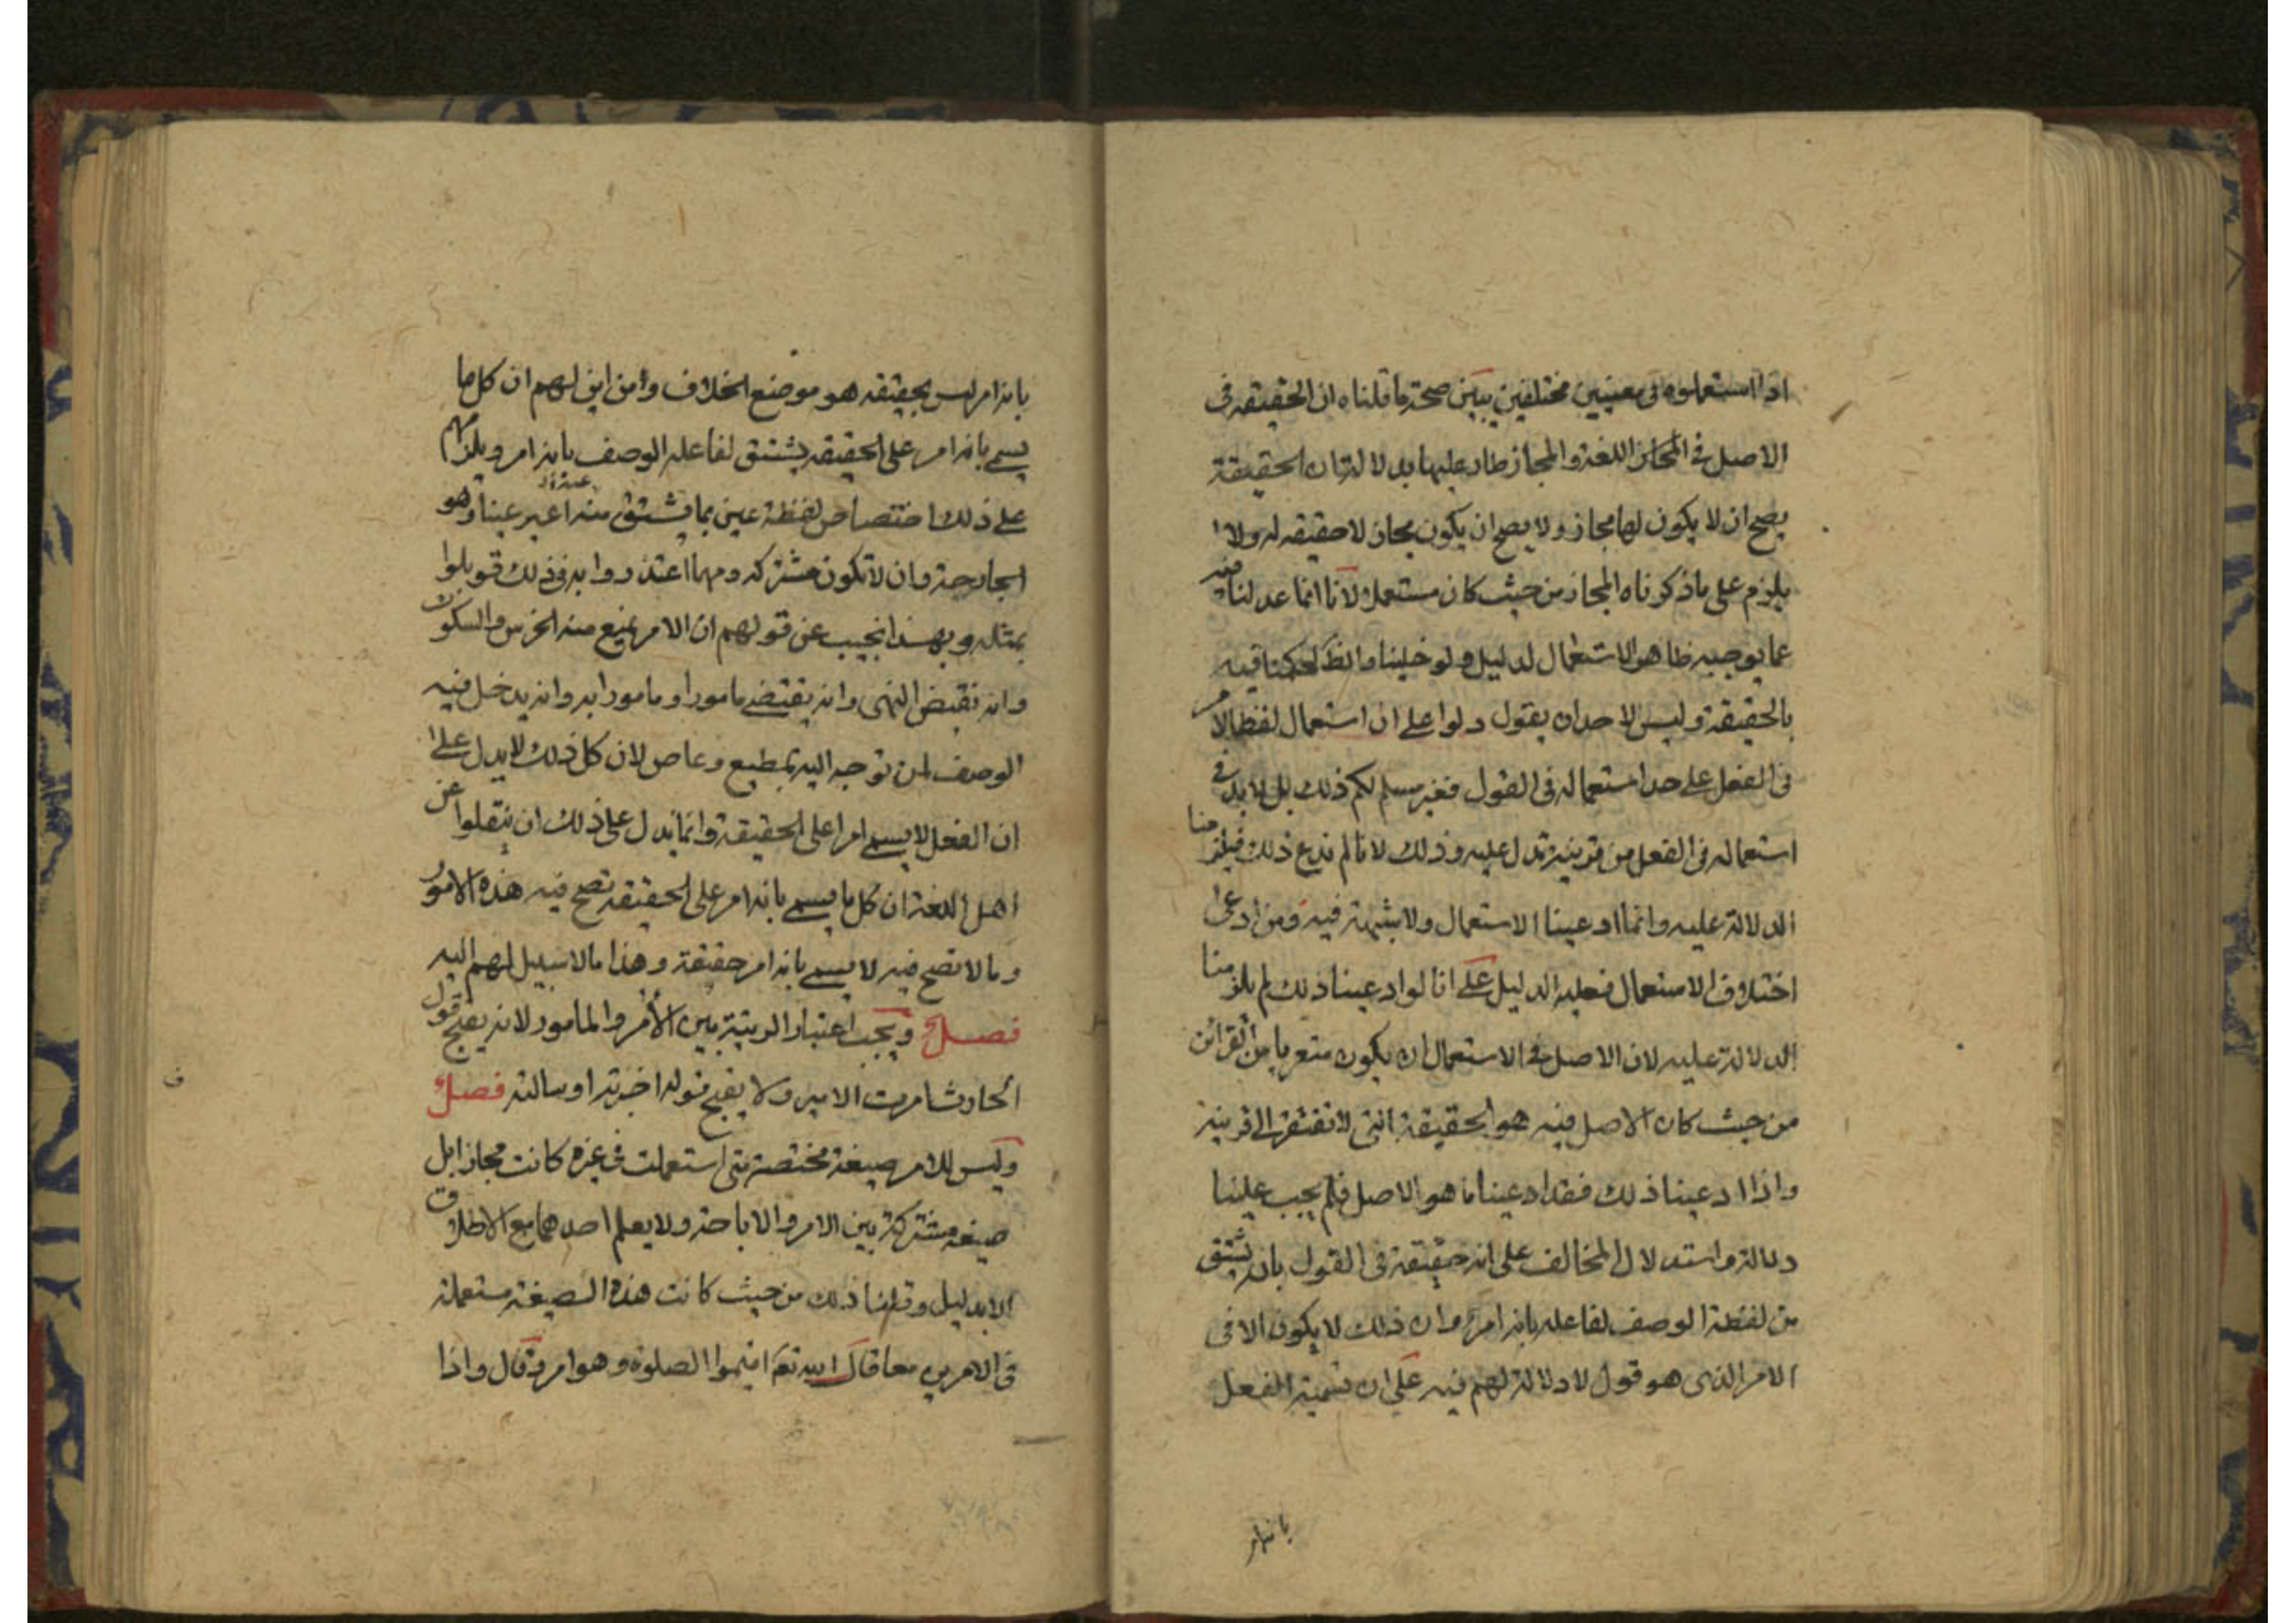 اذا استعملوه فى معنيين مختلفين يبين صحة ما قلناه ان الحقيقة فى
الاصل فى اللغة والمجاز طار عليها بدلالة ان الحقيقة
يصح ان لا يكون لها مجاز ولا يصح ان يكون مجاز لا حقيقه له ولا
يلزم على ما ذكرناه المجاز من حيث كان مستعملا لانا انما عدلنا فيه
عما يوجبه ظاهر الاستعمال لدليل ولو خلينا والظ لحكمنا فيه
بالحقيقة وليس لاحد ان يقول دلوا على ان استعمال لفظ الامر
فى الفعل على حد استعماله فى القول فغير مسلم لكم ذلك بل لا بد فى
استعماله فى الفعل من قرينة تدل عليه وذلك لانا لم ندع ذلك فيلزمنا
الدلالة عليه وانما ادعينا الاستعمال ولا شبهة فيه ومن ادعى
اختلاف الاستعمال فعليه الدليل على انا لو ادعينا ذلك لم يلزمنا
الدلالة عليه لان الاصل فى الاستعمال ان يكون متعريا من القرائن
من حيث كان الاصل فيه هو الحقيقة التى لا تفتقر الى قرينة
واذا ادعينا ذلك فقد ادعينا ما هو الاصل فلم يجب علينا
دلالة واستدلال المخالف على انه حقيقة فى القول بانه يشتق
من لفظة الوصف لفاعله بانه امر وان ذلك لا يكون الا فى
الامر الذى هو قول لا دلالة لهم فيه على ان تسمية الفعل
بانه امر
بانه امر ليس بحقيقه هو موضع الخلاف وامن اين لهم ان كل ما
يسمى بانه امر على الحقيقه يشتق لفاعله الوصف بانه امر ويلزمهم
على ذلك اختصاص لفظة عين بما يشتق منه اعين عينا وهو
الجارحة وان لا تكون مشتركه ومهما اعتذروا به فى ذلك قوبلوا
بمثله وبهذا نجيب عن قولهم ان الامر يمنع منه الخرس والسكوت
وانه نقيض النهى وانه يقتضى مامورا ومامورا به وانه يدخل فيه
الوصف لمن توجه اليه بمطيع وعاص لان كل ذلك لا يدل على
ان الفعل لا يسمى امرا على الحقيقة وانما يدل على ذلك ان ينقلوا عن
اهل اللغة ان كل ما يسمى بانه امر على الحقيقه تصح فيه هذه الامور
وما لا تصح فيه لا يسمى بانه امر حقيقة وهذا ما لا سبيل لهم اليه
فصل ويجب اعتبار الرتبة بين الأمر والمامور لانه يقبح قول
الحارث امرت الامير ولا يقبح قوله اخبرته او سالته فصل
وليس للامر صيغة مختصة متى استعملت فى غيره كانت مجازا بل
صيغه مشتركة بين الامر والاباحة ولا يعلم احدهما مع الاطلاق
الا بدليل وقلنا ذلك من حيث كانت هذه الصيغة مستعملة
فى الامرين معا قال الله تع اقيموا الصلوة وهو امر وقال واذا